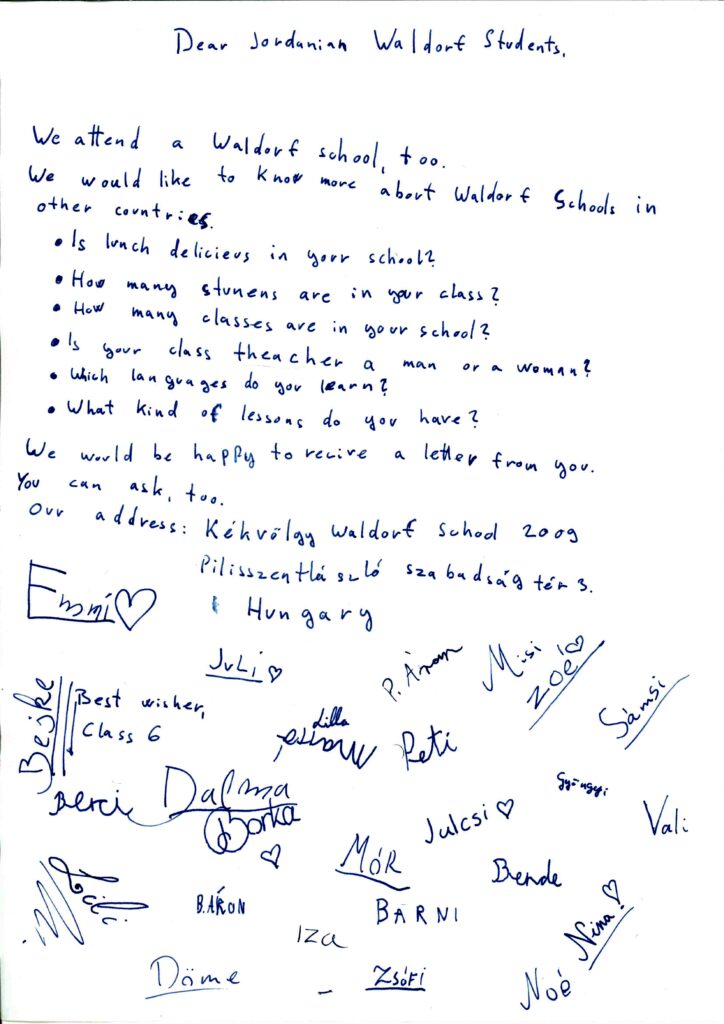 Dear Jordanian Waldorf Students,
We attend a Waldorf school, too.
We would like to know more about Waldorf Schools in
other countries.
• Is lunch delicieus in your school?
• How many stunens are in your class?
• How many classes are in your school?
• Is your class theacher a man or a woman?
• Which languages do you learn?
• What kind of lessons do you have?
We would be happy to recive a letter from you.
You can ask, too.
Our address: Kékvölgy Waldorf School 2009
Pilisszentlászló szabadság tér 3.
Hungary
Emmi
JuLi
P. Áron
Misi
ZOÉ
Sámsi
Bejke
Best wisher,
Class 6
Lilla
Marcsi
Peti
Berci
Dalma
Borka
Gyöngyi
Julcsi
Vali
MÓR
Bende
B.ÁRON
BARNI
IZA
Nina!
Döme
ZSÓFI
Noé